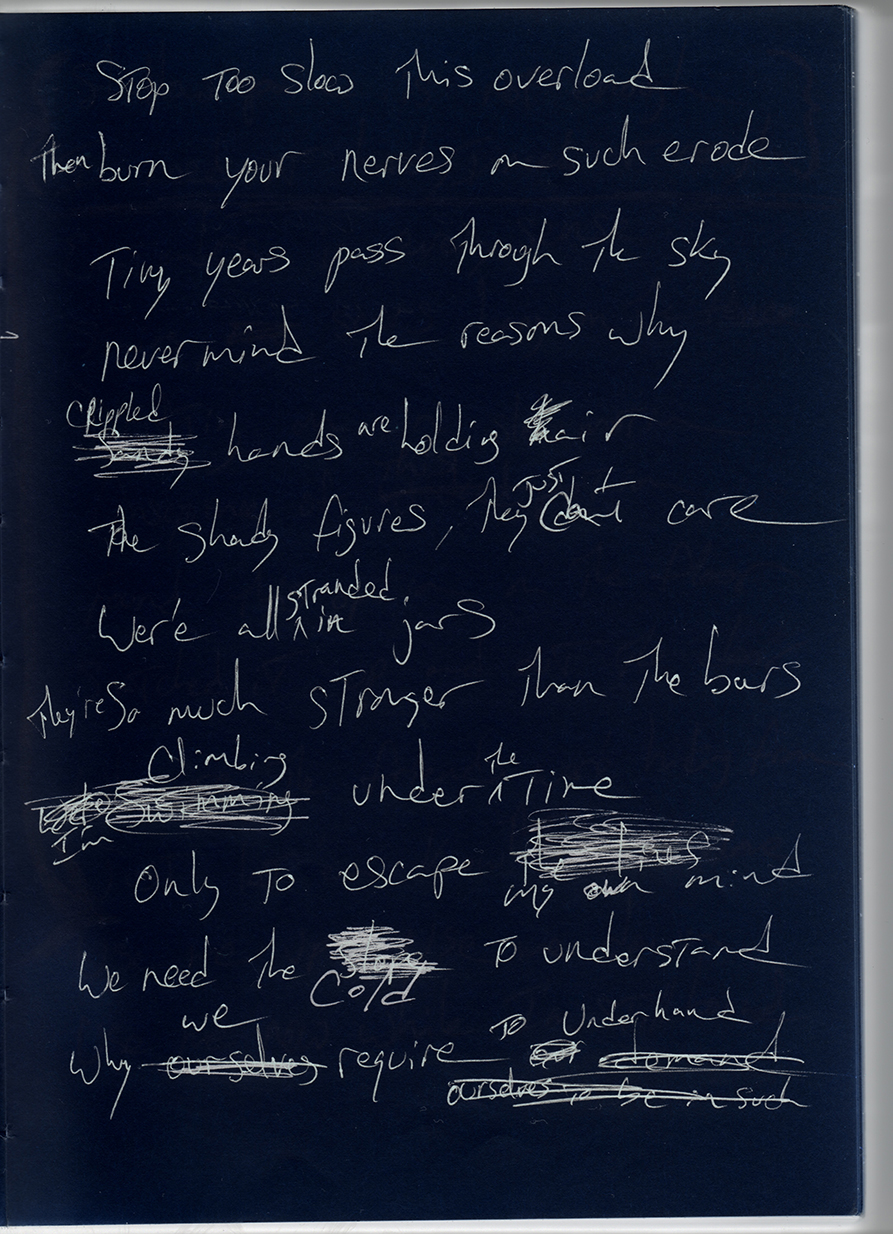 Stop too slow this overload
Then burn your nerves on such erode
Tiny years pass through the sky
never mind the reasons why
Crippled
hands are holding air
The shady figures, they just don't care
Wer'e all stranded in jars
They're so much stronger than the bars
Climbing
Swimming under the Time
I'm
Only to escape
my own mind
We need the to understand
Cold
we to Underhand
Why ourselves require our demand
ourselves to be in such